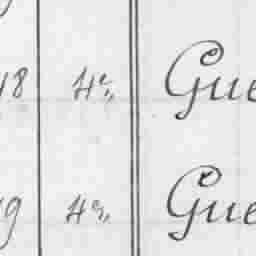 18 4º, Gue
19 4º, Gue